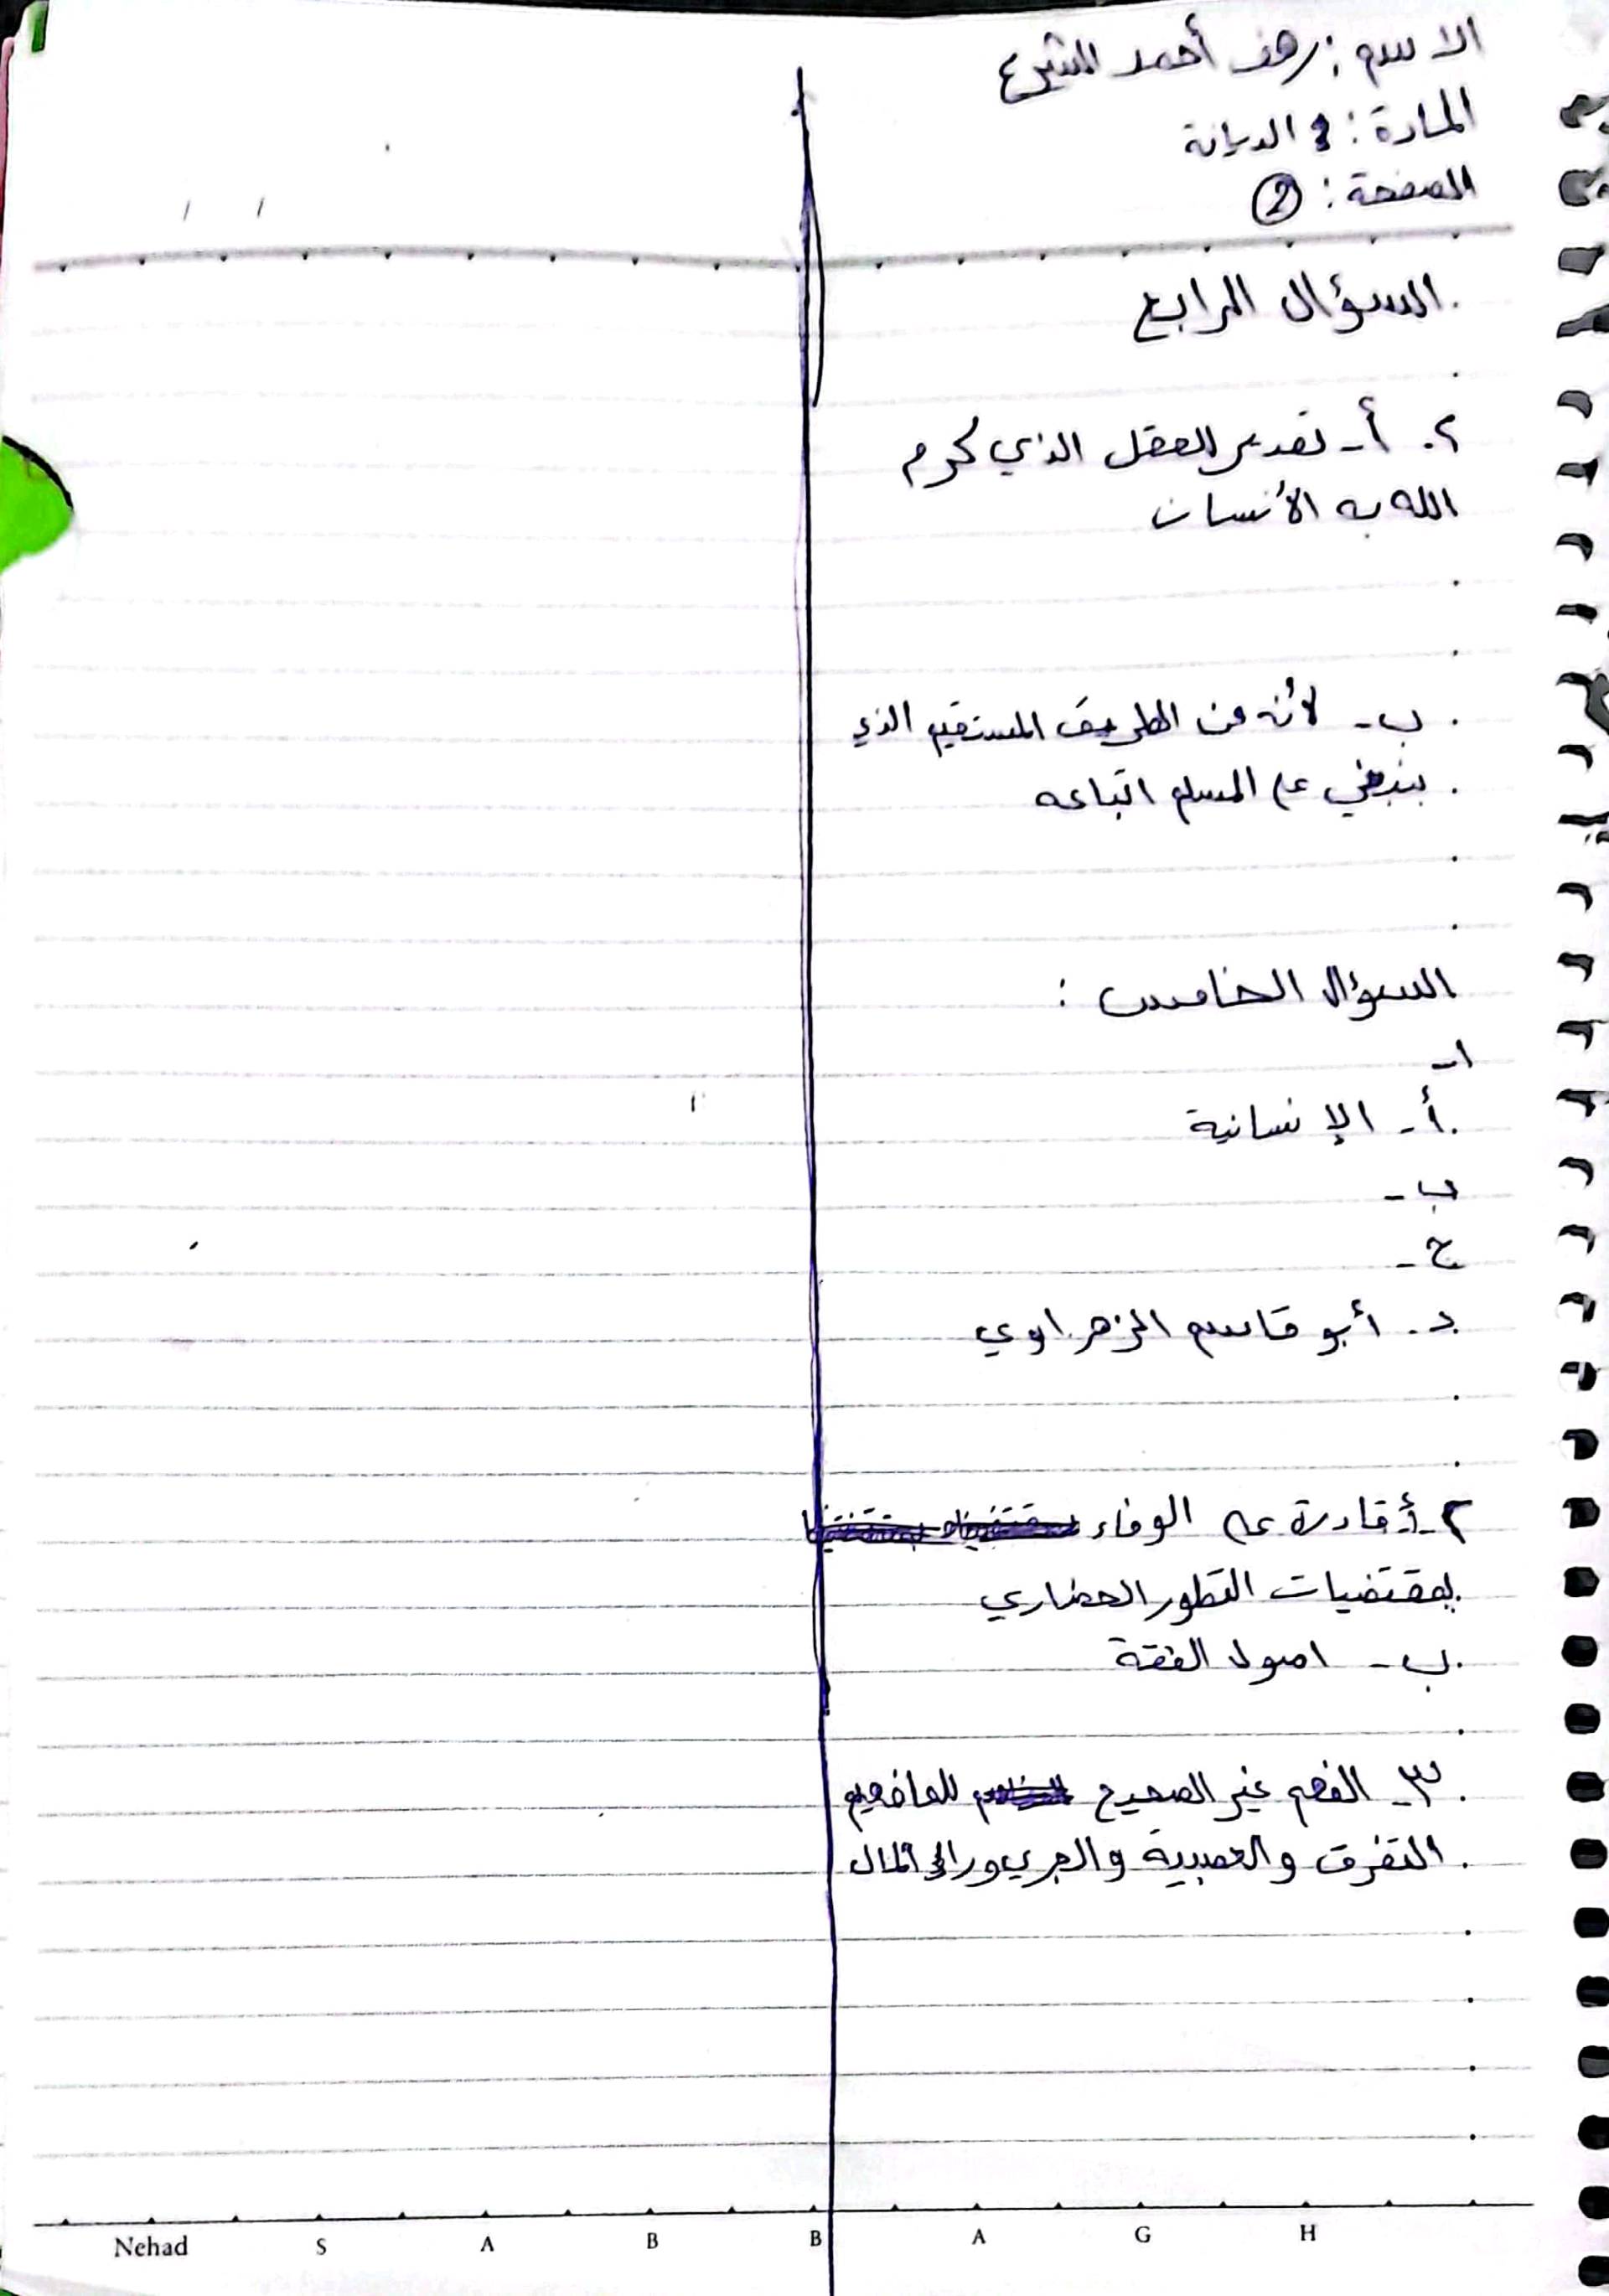 الاسم : رهف أحمد الشرع
المادة : الديانة
الصفحة : 2
السؤال الرابع
٢. أ- تقدير العقل الذي كرم
الله به الأنسان
ب- لأنه من الطريق المستقيم الذي
ينبغي على المسلم اتباعه
السؤال الخامس :
١-
أ- الإنسانية
ب-
ج-
د. أبو قاسم الزهراوي
٢- أ قادرة على الوفاء
بمقتضيات التطور الحضاري
ب- اصول الفقة
٣- الفهم غير الصحيح
التفرق والعصبية والجري وراء المال
Nehad S A B B A G H